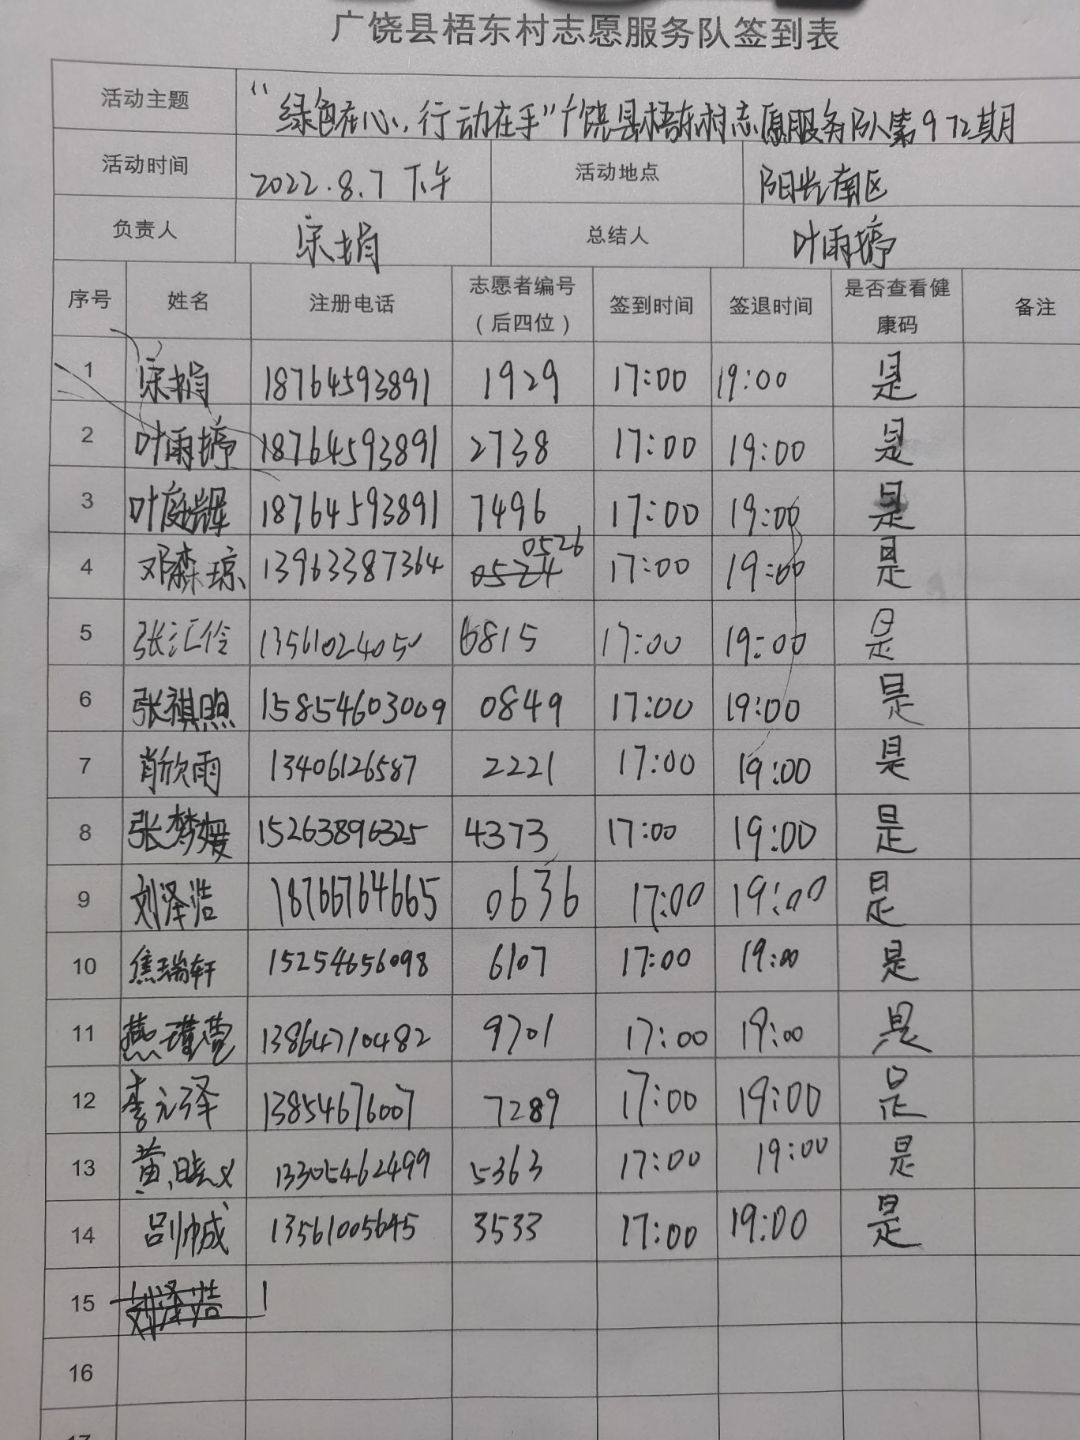 广饶县梧东村志愿服务队签到表
活动主题 “绿色在心,行动在手”广饶县梧东村志愿服务队第972期月
活动时间 2022.8.7 下午 活动地点 阳光南区
负责人 宋娟 总结人 叶雨婷
序号 姓名 注册电话 志愿者编号（后四位） 签到时间 签退时间 是否查看健康码 备注
1 宋娟 18764593891 1929 17:00 19:00 是
2 叶雨婷 18764593891 2738 17:00 19:00 是
3 叶庭辉 18764593891 7496 17:00 19:00 是
4 邓森琼 13963387364 0524 0526 17:00 19:00 是
5 张汇伶 1356102405 6815 17:00 19:00 是
6 张祺照 15854603009 0849 17:00 19:00 是
7 肖欣雨 13406126587 2221 17:00 19:00 是
8 张梦媛 15263896325 4373 17:00 19:00 是
9 刘泽浩 18766764665 0636 17:00 19:00 是
10 焦瑞轩 15254656098 6107 17:00 19:00 是
11 燕瑾 13864710482 9701 17:00 19:00 是
12 李元泽 13854676007 7289 17:00 19:00 是
13 黄晓义 13305462499 5363 17:00 19:00 是
14 吕帅成 13561005645 3533 17:00 19:00 是
15 刘泽浩 1
16
17